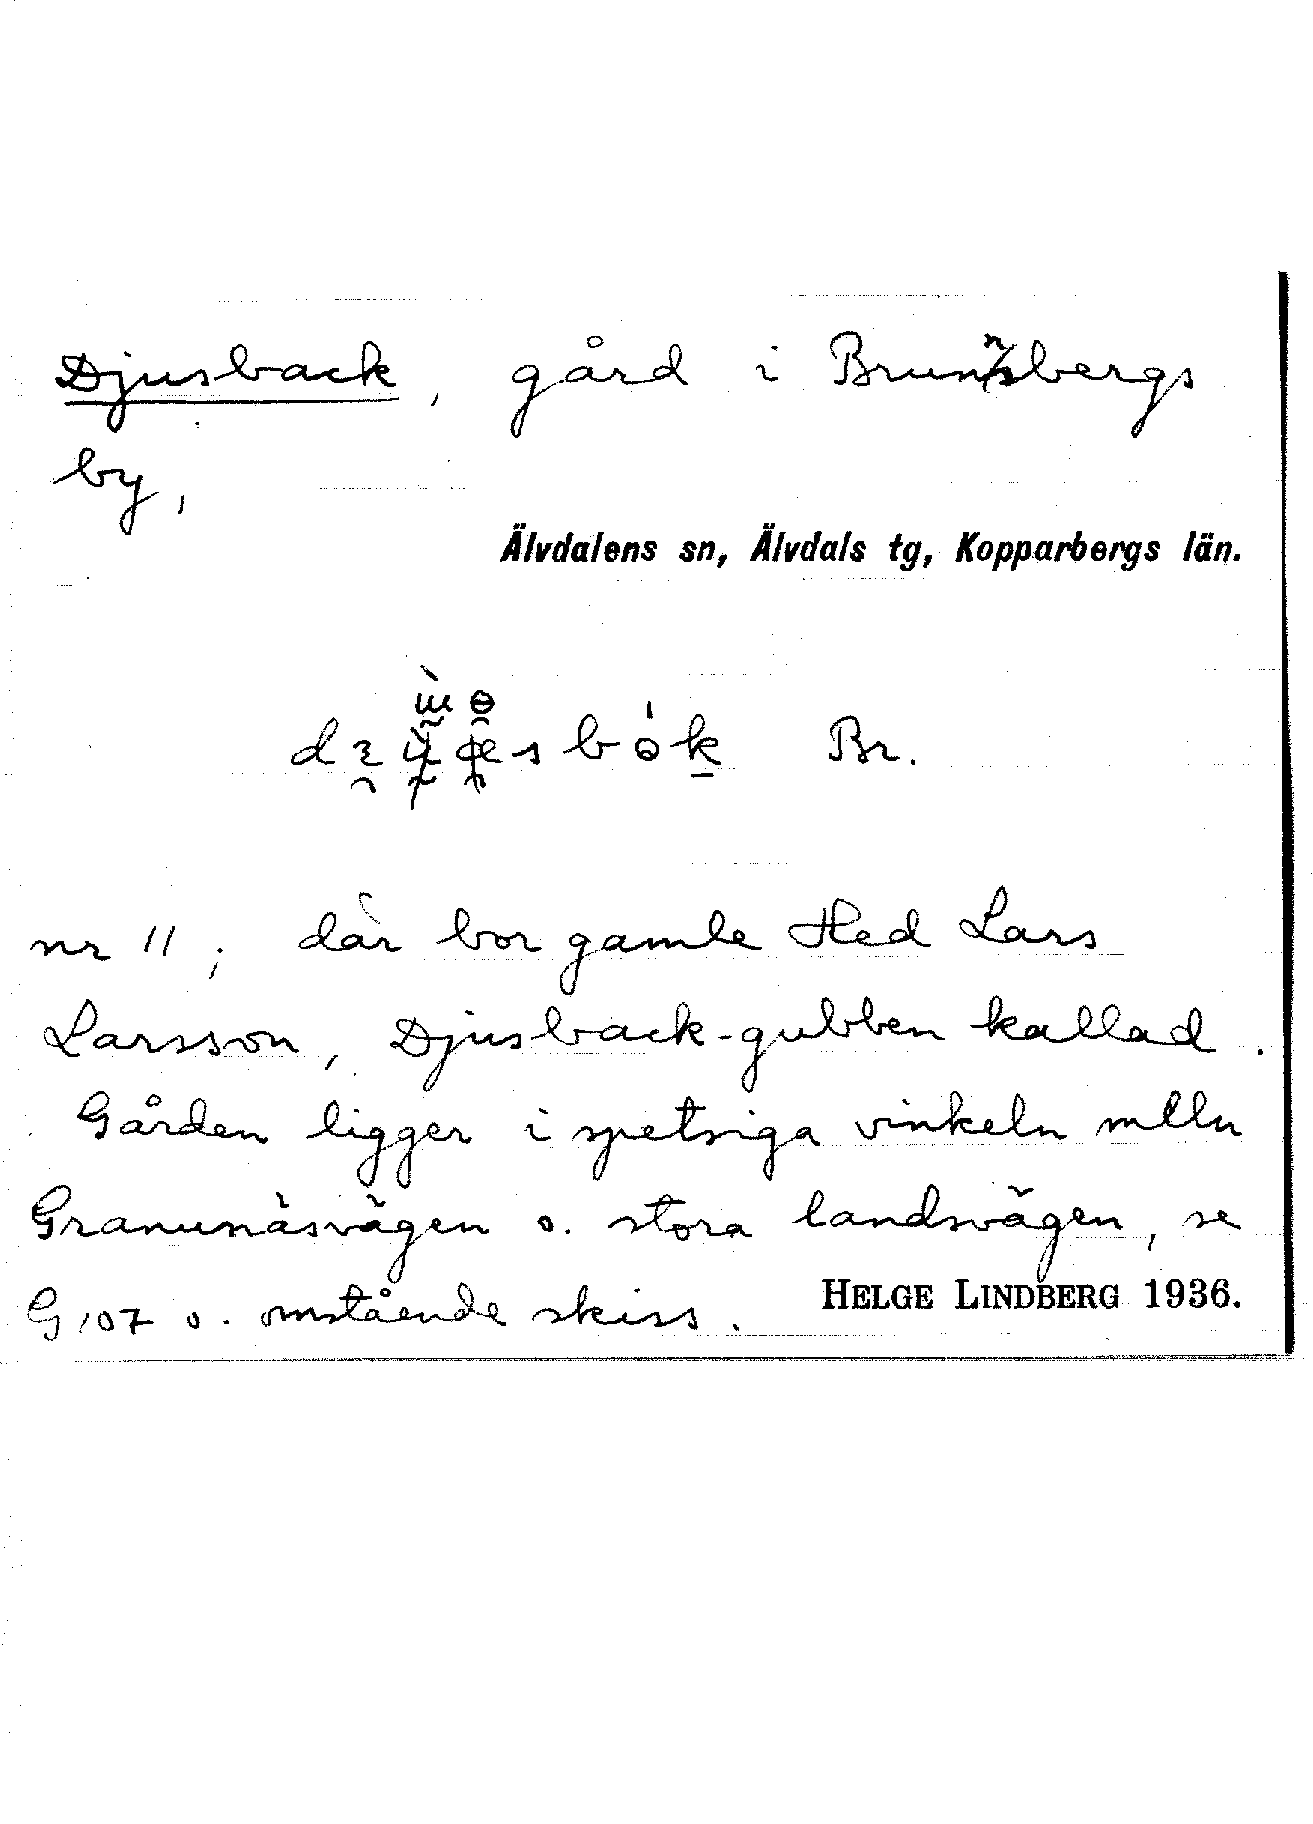 Djusback, gård i Brunnsbergs
by,
Älvdalens sn, Älvdals tg, Kopparbergs län.
Br.
nr 11; där bor gamle Hed Lars
Larsson, Djusback-gubben kallad.
Gården ligger i spetsiga vinkeln mlln
Granunäsvägen o. stora landsvägen, se
G 107 o. omstående skiss.
HELGE LINDBERG 1936.